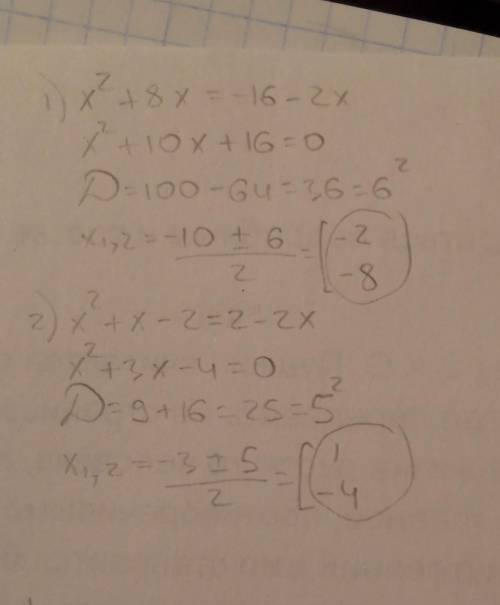 1) x² + 8x = -16 - 2x
x² + 10x + 16 = 0
D = 100 - 64 = 36 = 6²
x₁,₂ = (-10 ± 6)/2 = [-2
-8
2) x² + x - 2 = 2 - 2x
x² + 3x - 4 = 0
D = 9 + 16 = 25 = 5²
x₁,₂ = (-3 ± 5)/2 = [1
-4